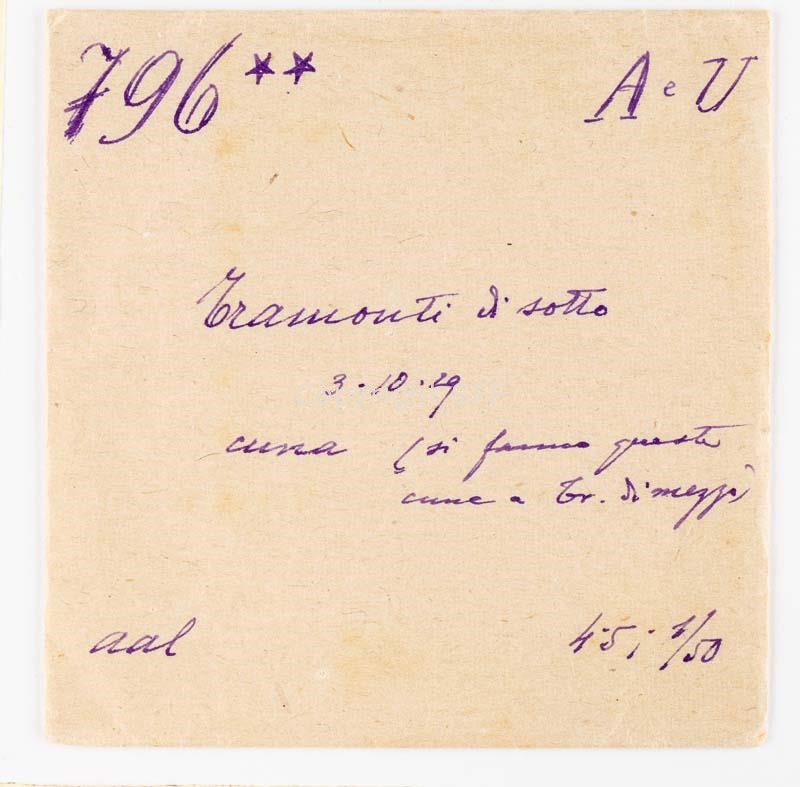 796** A e U
Tramonti di sotto
3-10-29
cuna (si fanno queste
cune a Tr. di mezzo)
aal 4.5; 1/50